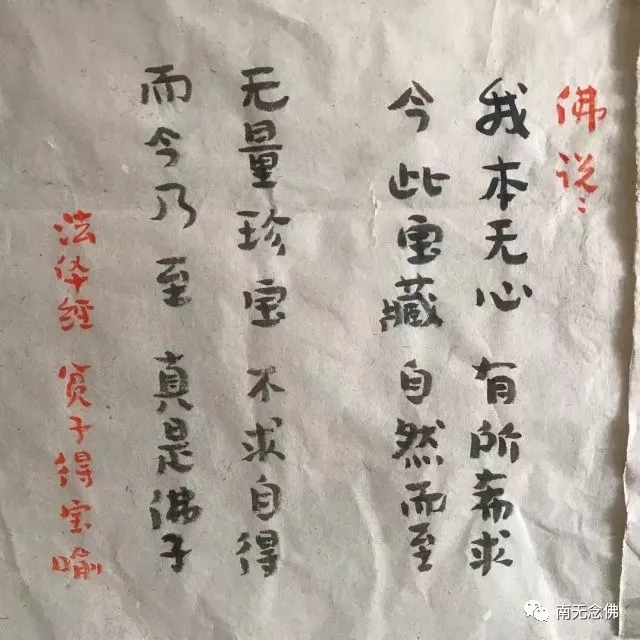 佛说:
我本无心 有所希求
今此宝藏 自然而至
无量珍宝 不求自得
而今乃至 真是佛子
法华经 贫子得宝喻
南无念佛